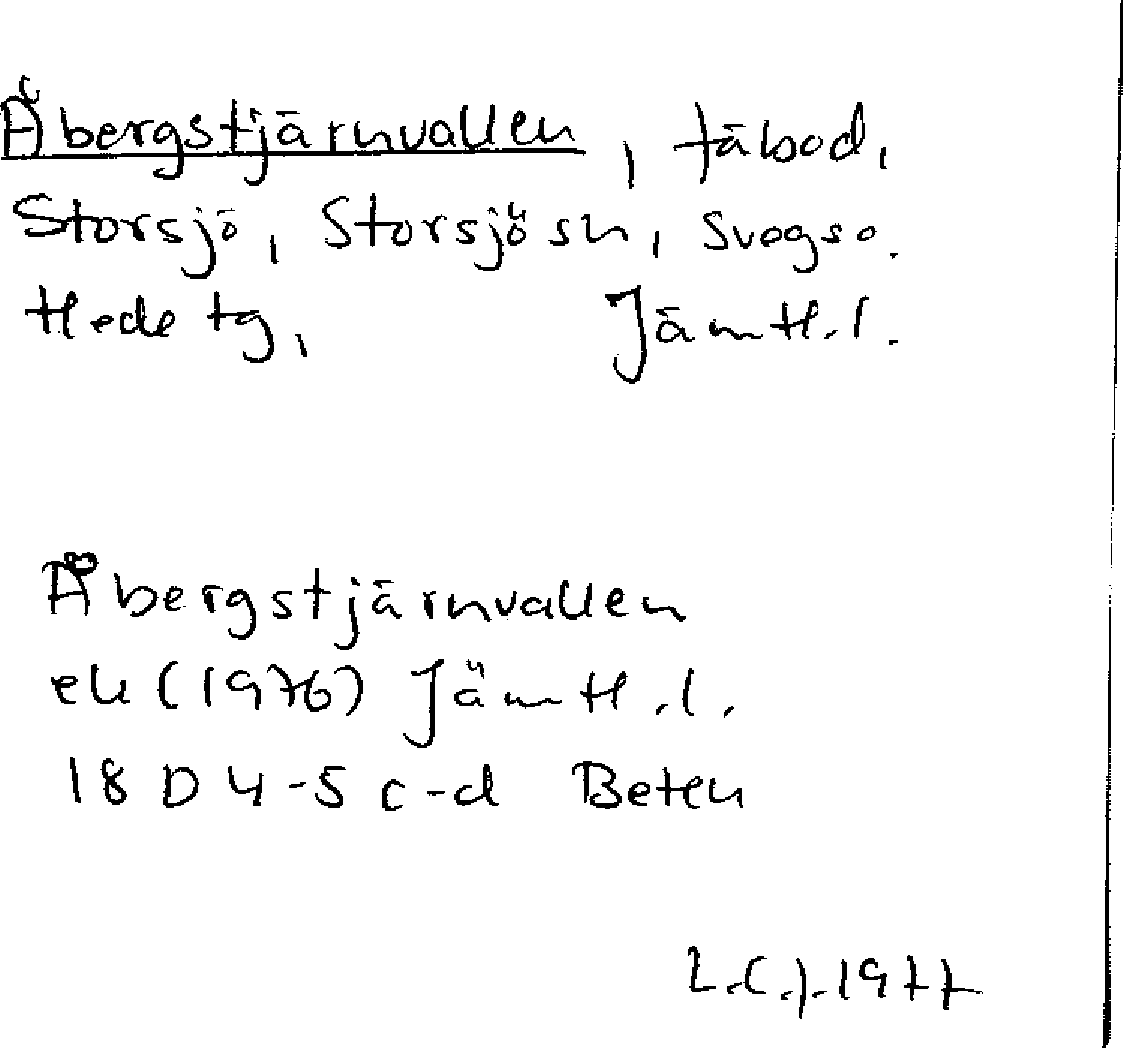 Åbergstjärnvallen, fäbod,
Storsjö, Storsjö sn, Svegs o.
Hede tg, Jämtl.l.
Åbergstjärnvallen
ek (1976) Jämtl.l.
18 D 4-5 c-d Beten
L.C.J. 1977